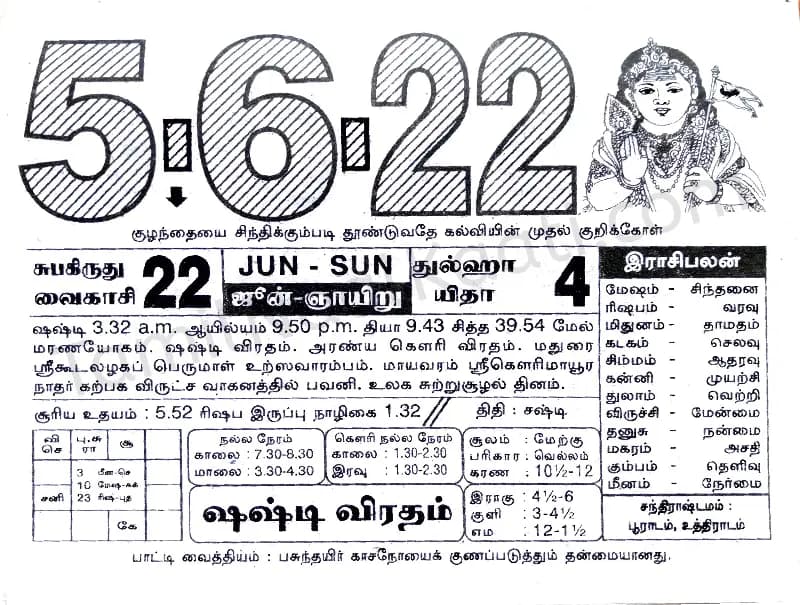 5.6.22
குழந்தையை சிந்திக்கும்படி தூண்டுவதே கல்வியின் முதல் குறிக்கோள்
சுபகிருது
வைகாசி
22
JUN - SUN
ஜூன்-ஞாயிறு
துல்ஹா
யிதா
4
இராசிபலன்
மேஷம் - சிந்தனை
ரிஷபம் - வரவு
மிதுனம் - தாமதம்
கடகம் - செலவு
சிம்மம் - ஆதரவு
கன்னி - முயற்சி
துலாம் - வெற்றி
விருச்சி - மேன்மை
தனுசு - நன்மை
மகரம் - அசதி
கும்பம் - தெளிவு
மீனம் - நேர்மை
சந்திராஷ்டமம் :
பூராடம், உத்திராடம்
ஷஷ்டி 3.32 a.m. ஆயில்யம் 9.50 p.m. தியா 9.43 சித்த 39.54 மேல்
மரணயோகம். ஷஷ்டி விரதம். அரண்ய கௌரி விரதம். மதுரை
ஸ்ரீகூடலழகப் பெருமாள் உற்ஸவாரம்பம். மாயவரம் ஸ்ரீகௌரிமாயூர
நாதர் கற்பக விருட்ச வாகனத்தில் பவனி. உலக சுற்றுசூழல் தினம்.
சூரிய உதயம் : 5.52 ரிஷப இருப்பு நாழிகை 1.32 // திதி : சஷ்டி
வி
செ
பு.சு
ரா
சூ
சனி
3 மீன-செ
10 மேஷ-சுக்
23 ரிஷி-புத
கே
நல்ல நேரம்
காலை : 7.30-8.30
மாலை : 3.30-4.30
கௌரி நல்ல நேரம்
காலை : 1.30-2.30
இரவு : 1.30-2.30
சூலம் : மேற்கு
பரிகார : வெல்லம்
கரண : 10½-12
ஷஷ்டி விரதம்
இராகு : 4½-6
குளி : 3-4½
எம : 12-1½
பாட்டி வைத்தியம் : பசுந்தயிர் காசநோயைக் குணப்படுத்தும் தன்மையானது.